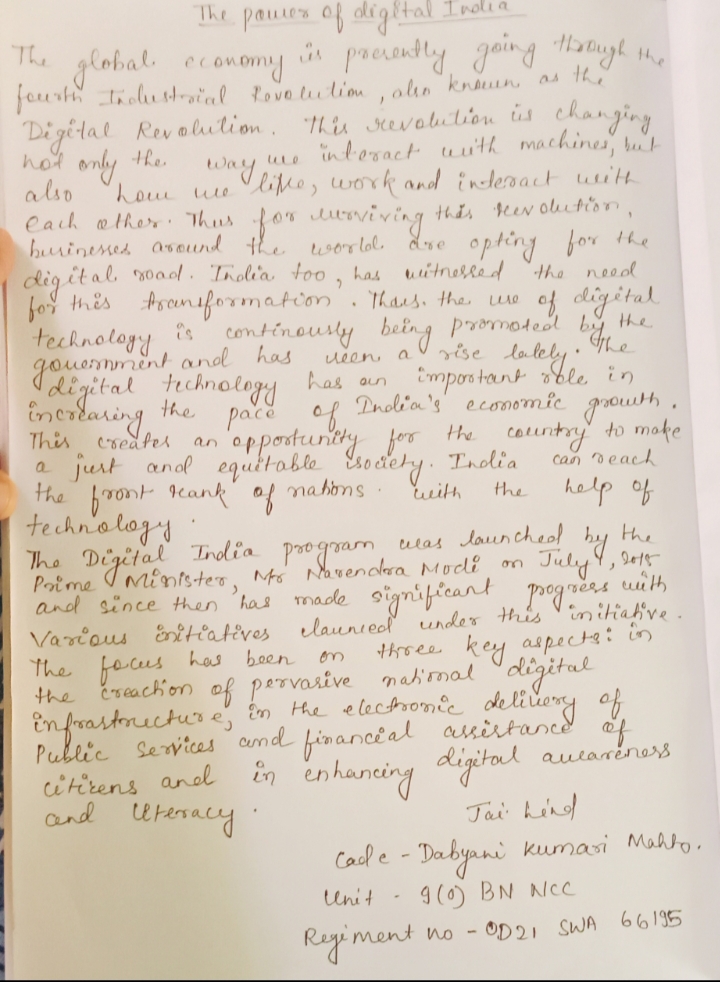 The power of digital India
The global economy is presently going through the
fourth Industrial Revolution, also known as the
Digital Revolution. This revolution is changing
not only the way we interact with machines, but
also how we like, work and interact with
each other. Thus for surviving this revolution,
businesses around the world are opting for the
digital road. India too, has witnessed the need
for this transformation. Thus. the use of digital
technology is continously being promoted by the
government and has seen a rise lately. The
digital technology has an important role in
increasing the pace of India's economic growth.
This creates an opportunity for the country to make
a just and equitable society. India can reach
the front rank of nations. with the help of
technology.
The Digital India program was launched by the
Prime Minister, Mr Narendra Modi on July 1, 2015
and since then has made significant progress with
Various initiatives launced under this initiative.
The focus has been on three key aspects: in
the creaction of pervasive national digital
infrastructure, in the electronic delivery of
Public Services and financial assistance of
citizens and in enhancing digital awareness
and literacy.
Jai hind
Cade - Dabyani Kumari Mahto.
Unit - 9(O) BN NCC
Regiment no - OD21 SWA 66195